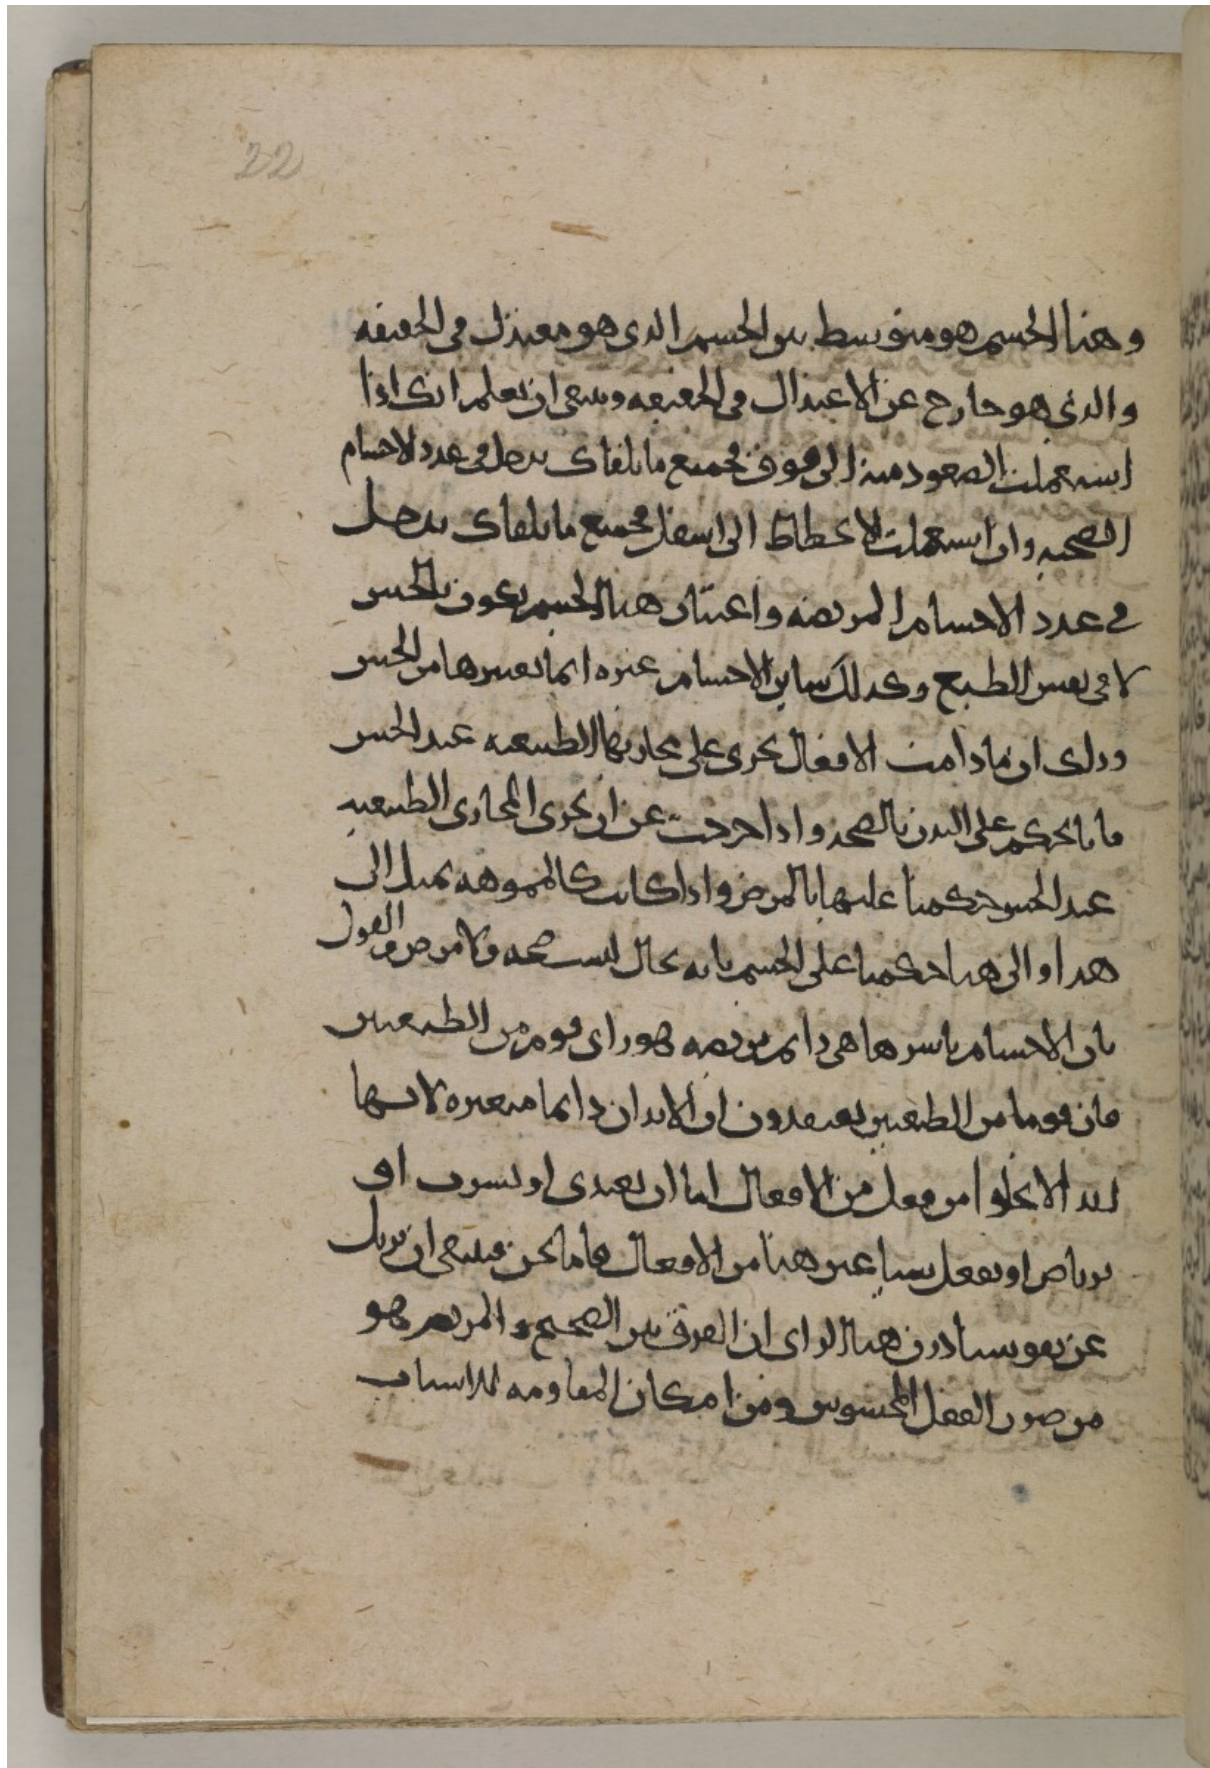 22
وهذا الجسم هو متوسط بين الجسم الذي هو معتدل في الحقيقه
والذي هو خارج عن الاعتدال في الحقيقه وينبغي ان تعلم انك اذا
استعملت الصعود منه الى فوق فجميع ما يلقاك يدخل في عدد الاجسام
الصحيه وان استعملت الانحطاط الى اسفل فجميع ما يلقاك يدخل
في عدد الاجسام المريضه واعتبار هذا الجسم يكون بالحس
لا في نفس الطبع وكذلك ساير الاجسام غيره انما تعتبرها من الحس
وذلك ان ما دامت الافعال تجري على مجاريها الطبيعيه عند الحس
فانا نحكم على البدن بالصحه واذا خرجت عن ان تجري المجاري الطبيعيه
عند الحس حكمنا عليها بالمرض واذا كانت كالمموهه تميل الى
هذا والى هذا حكمنا على الجسم بانه بحال ليست صحه ولا مرض والقول
بان الاجسام باسرها هي دايم مريضه فهو راي قوم من الطبيعيين
فان قوما من الطبيعيين يعتقدون ان الابدان دايما متغيره لانها
ابدا لا تخلوا من فعل من الافعال اما ان تغتدي او تشرب او
ترتاض او تفعل شيا غير هذا من الافعال فاما نحن فينبغي ان نزيل
عن نفوسنا درن هذا الراي ان الفرق بين الصحيح والمريض هو
من ضرر الفعل المحسوس ومن امكان المقاومه للاسباب